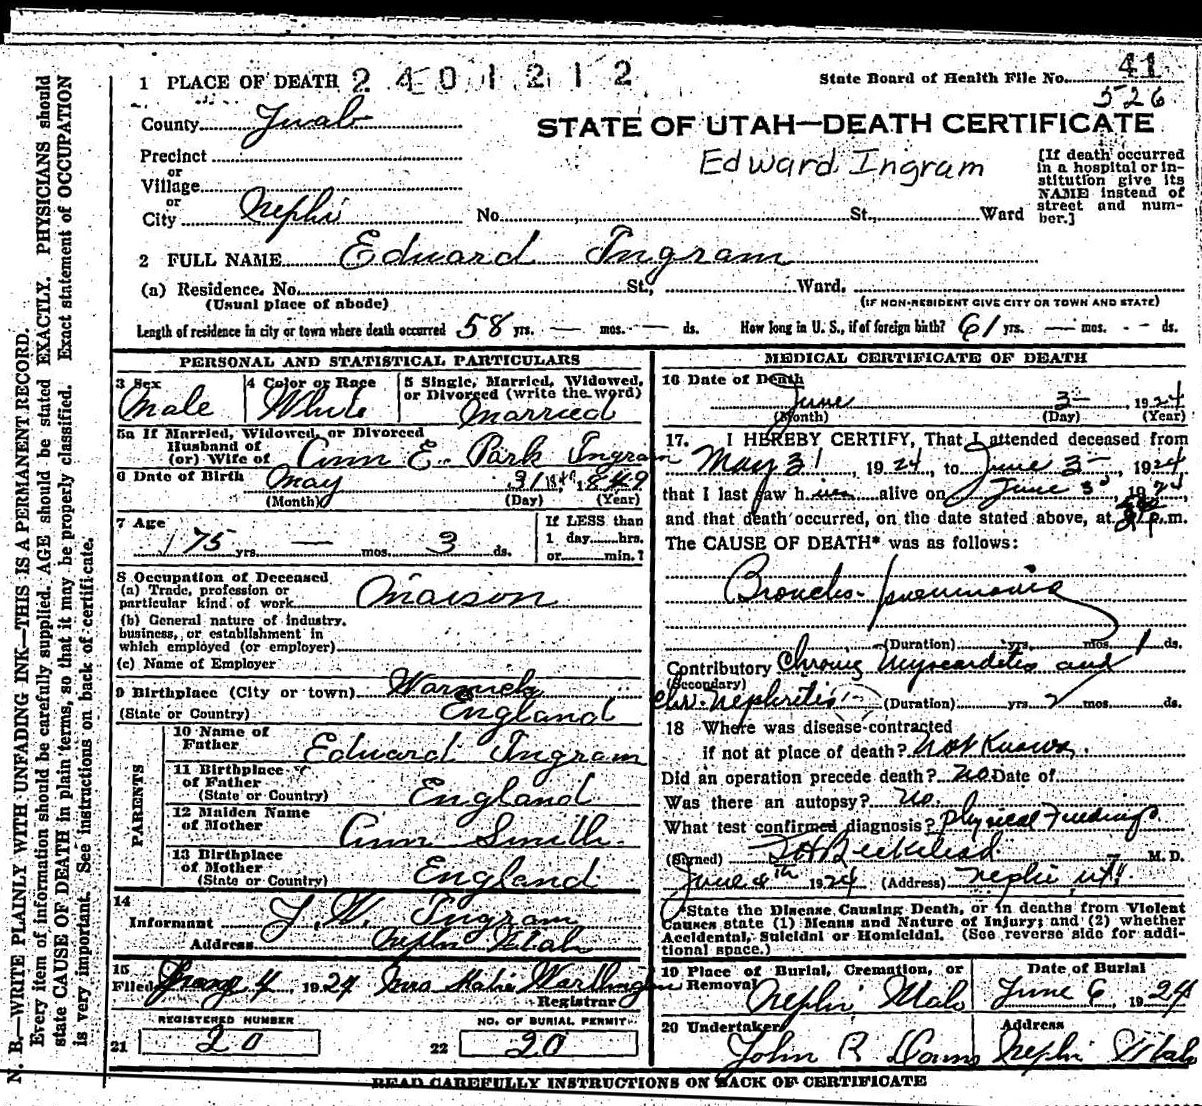 1 PLACE OF DEATH 2401212
State Board of Health File No. 41
526
County Juab
STATE OF UTAH—DEATH CERTIFICATE
Edward Ingram
Precinct
or
Village
or
City Nephi No. St., Ward
[If death occurred
in a hospital or in-
stitution give its
NAME instead of
street and num-
ber.]
2 FULL NAME Edward Ingram
(a) Residence. No. St., Ward.
(Usual place of abode) (IF NON-RESIDENT GIVE CITY OR TOWN AND STATE)
Length of residence in city or town where death occurred 58 yrs. — mos. — ds. How long in U. S., if of foreign birth? 61 yrs. — mos. - - ds.
PERSONAL AND STATISTICAL PARTICULARS
3 Sex
Male
4 Color or Race
White
5 Single, Married, Widowed,
or Divorced (write the word)
Married
5a If Married, Widowed, or Divorced
Husband of
(or) Wife of Ann E. Park Ingram
6 Date of Birth May 31 1849
(Month) (Day) (Year)
7 Age
75 yrs. — mos. 3 ds.
If LESS than
1 day hrs.
or min.?
8 Occupation of Deceased
(a) Trade, profession or
particular kind of work Maison
(b) General nature of industry,
business, or establishment in
which employed (or employer)
(c) Name of Employer
9 Birthplace (City or town) Warwick
(State or Country) England
PARENTS
10 Name of
Father Edward Ingram
11 Birthplace
of Father
(State or Country) England
12 Maiden Name
of Mother Ann Smith
13 Birthplace
of Mother
(State or Country) England
14
Informant J. W. Ingram
Address Nephi Utah
15
Filed 4 1924
Registrar
REGISTERED NUMBER
21 20
NO. OF BURIAL PERMIT
22 20
MEDICAL CERTIFICATE OF DEATH
16 Date of Death
June 3 1924
(Month) (Day) (Year)
17. I HEREBY CERTIFY, That I attended deceased from
May 31, 1924, to June 3, 1924
that I last saw h im alive on June 3, 1924
and that death occurred, on the date stated above, at p.m.
The CAUSE OF DEATH* was as follows:
Broncho-pneumonia
(Duration) yrs. mos. 1 ds.
Contributory Chronic Myocarditis and
(Secondary)
Chr. Nephritis (Duration) yrs. 2 mos. ds.
18 Where was disease contracted
if not at place of death? Not Known.
Did an operation precede death? No. Date of
Was there an autopsy? No.
What test confirmed diagnosis? Physical Findings
(Signed) M. D.
June 4th 1924 (Address) Nephi Ut
*State the Disease Causing Death, or in deaths from Violent
Causes state (1) Means and Nature of Injury; and (2) whether
Accidental, Suicidal or Homicidal. (See reverse side for addi-
tional space.)
19 Place of Burial, Cremation, or
Removal Nephi Utah
Date of Burial
June 6 1924
20 Undertaker
John R
Address
Nephi Utah
READ CAREFULLY INSTRUCTIONS ON BACK OF CERTIFICATE
N. B.—WRITE PLAINLY WITH UNFADING INK—THIS IS A PERMANENT RECORD.
Every item of information should be carefully supplied. AGE should be stated EXACTLY. PHYSICIANS should
state CAUSE OF DEATH in plain terms, so that it may be properly classified. Exact statement of OCCUPATION
is very important. See instructions on back of certificate.